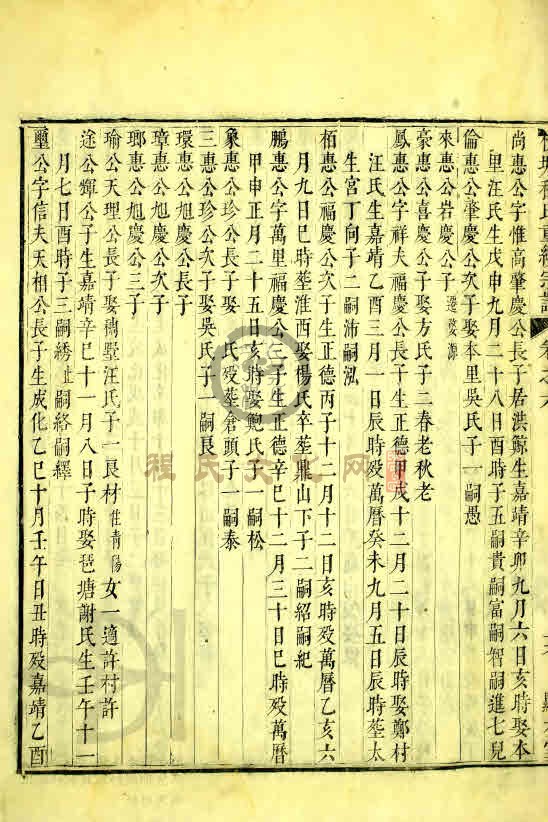 尚惠公字惟高肇慶公長子居洪鯨生嘉靖辛卯九月六日亥時娶本
里汪氏生戊申九月二十八日酉時子五嗣貴嗣富嗣智嗣進七兒
倫惠公肇慶公次子娶本里吳氏子一嗣愚
來惠公岩慶公子遷婺源
豪惠公喜慶公子娶方氏子二春老秋老
鳳惠公字祥夫福慶公長子生正德甲戌十二月二十日辰時娶鄭村
汪氏生嘉靖乙酉三月一日辰時歿萬曆癸未九月五日辰時塟太
生宮丁向子二嗣沛嗣泓
栢惠公福慶公次子生正德丙子十二月十二日亥時歿萬曆乙亥六
月九日巳時塟淮西娶楊氏卒塟鼎山下子二嗣紹嗣紀
鵬惠公字萬里福慶公三子生正德辛巳十二月三十日巳時歿萬曆
甲申正月二十五日亥時娶鮑氏子一嗣松
象惠公珍公長子娶 氏歿塟倉頭子一嗣泰
三惠公珍公次子娶吳氏子一嗣艮
環惠公旭慶公長子
璋惠公旭慶公次子
瑯惠公旭慶公三子
瑜公天理公長子娶稠墅汪氏子一良材 青陽女一適許村許
途公輝公子生嘉靖辛巳十一月八日子時娶琶塘謝氏生壬午十一
月七日酉時子三嗣綉 嗣絡嗣繹
璽公字信夫天相公長子生成化乙巳十月壬午日丑時歿嘉靖乙酉
程氏文化网